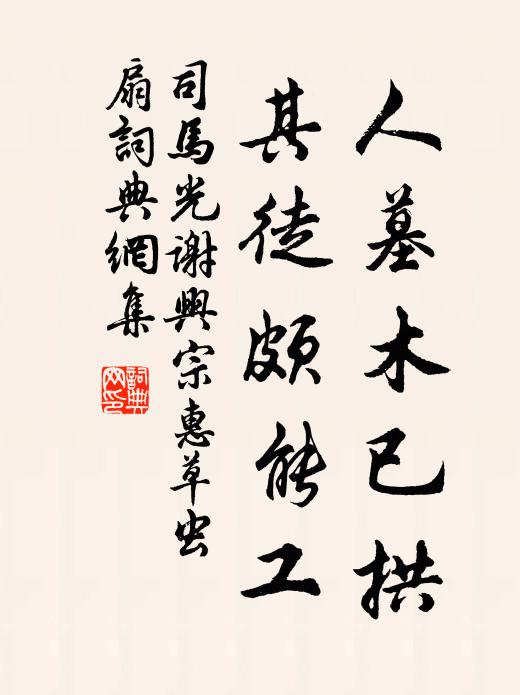 人墓木已拱
其徒頗能工
司馬光謝興宗惠草虫
扇詞典網集
詞典網印